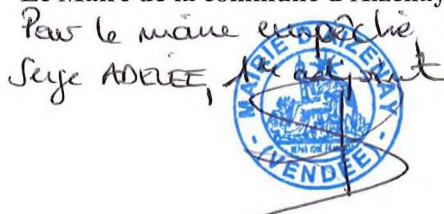 Le Maire de la commune d'Aizenay
Pour le maire empêché,
Serge ADELÉE, 1er adjoint
MAIRIE D'AIZENAY
(VENDÉE)